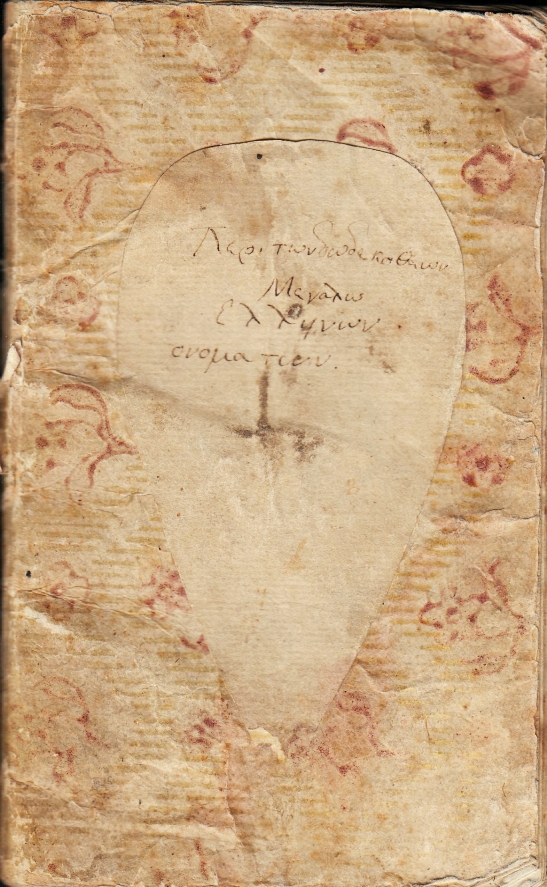 Περι των δωδεκα θεων
Μεγαλω
ελληνων.
ονοματων.